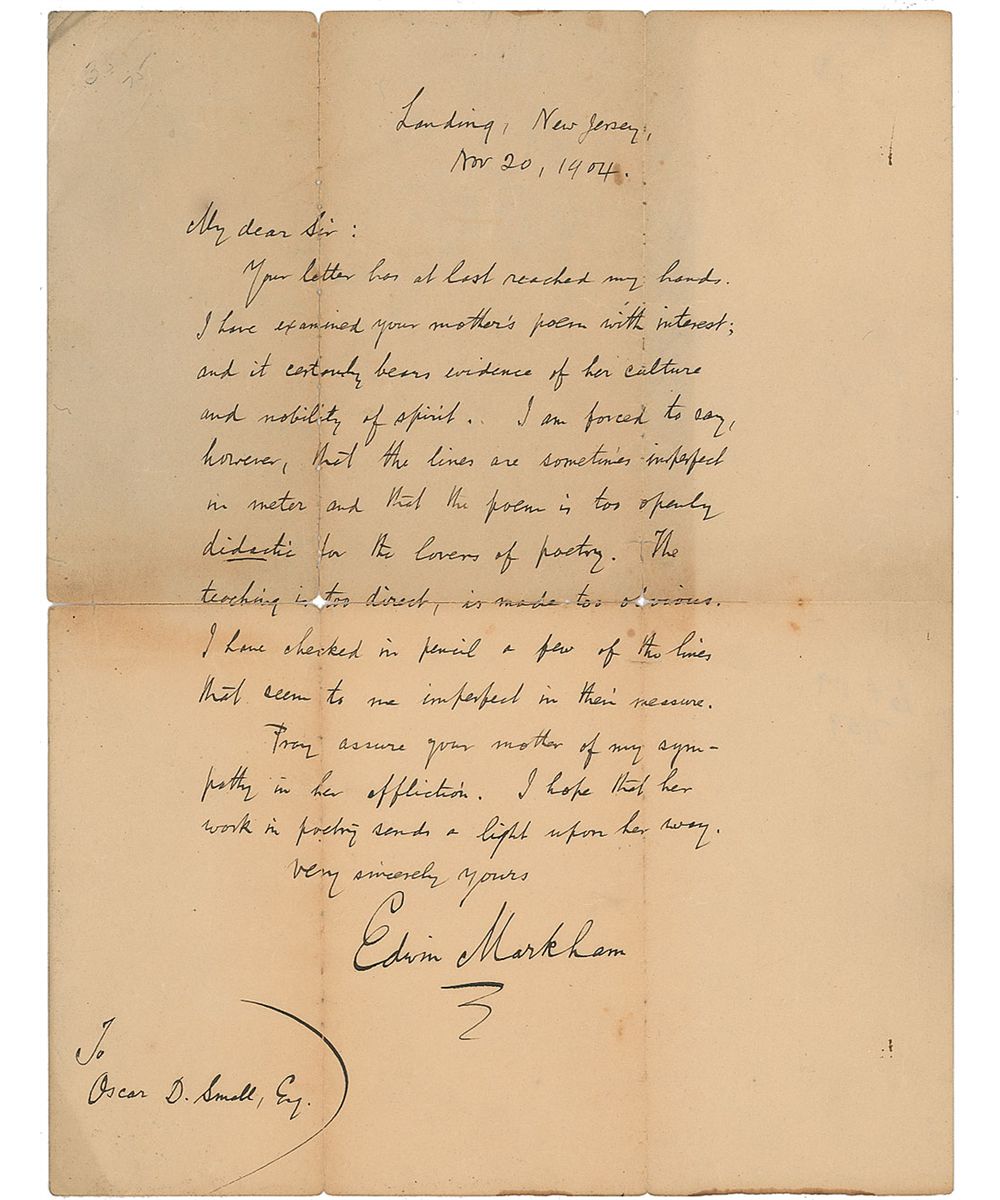 Landing, New Jersey,
Nov 20, 1904.
My dear Sir :
Your letter has at last reached my hands.
I have examined your mother's poem with interest;
and it certainly bears evidence of her culture
and nobility of spirit. I am forced to say,
however, that the lines are sometimes imperfect
in meter and that the poem is too openly
didactic for the lovers of poetry. The
teaching is too direct, is made too obvious.
I have checked in pencil a few of the lines
that seem to me imperfect in their measure.
Pray assure your mother of my sym-
pathy in her affliction. I hope that her
work in poetry sends a light upon her way.
Very sincerely yours
Edwin Markham
To
Oscar D. Small, Esq.